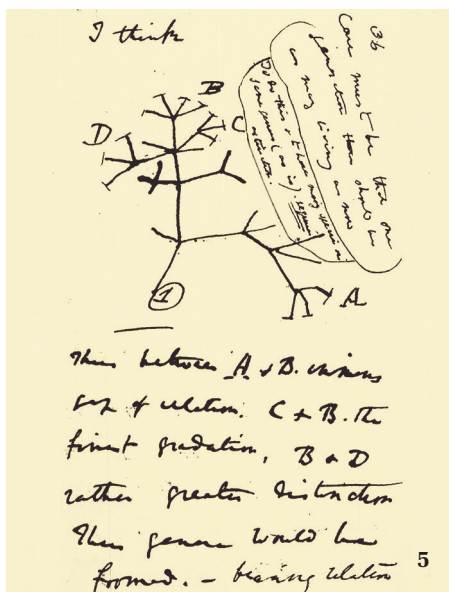 I think
36
Case must be that one
generation then should be
as many living as now
To do this & to have many species in
same genus (as is). requires
extinction.
B
D
C
A
1
Thus between A & B. immens
gap of relation. C & B. the
finest gradation, B & D
rather greater distinction
Thus genera would be
formed. — bearing relation
5